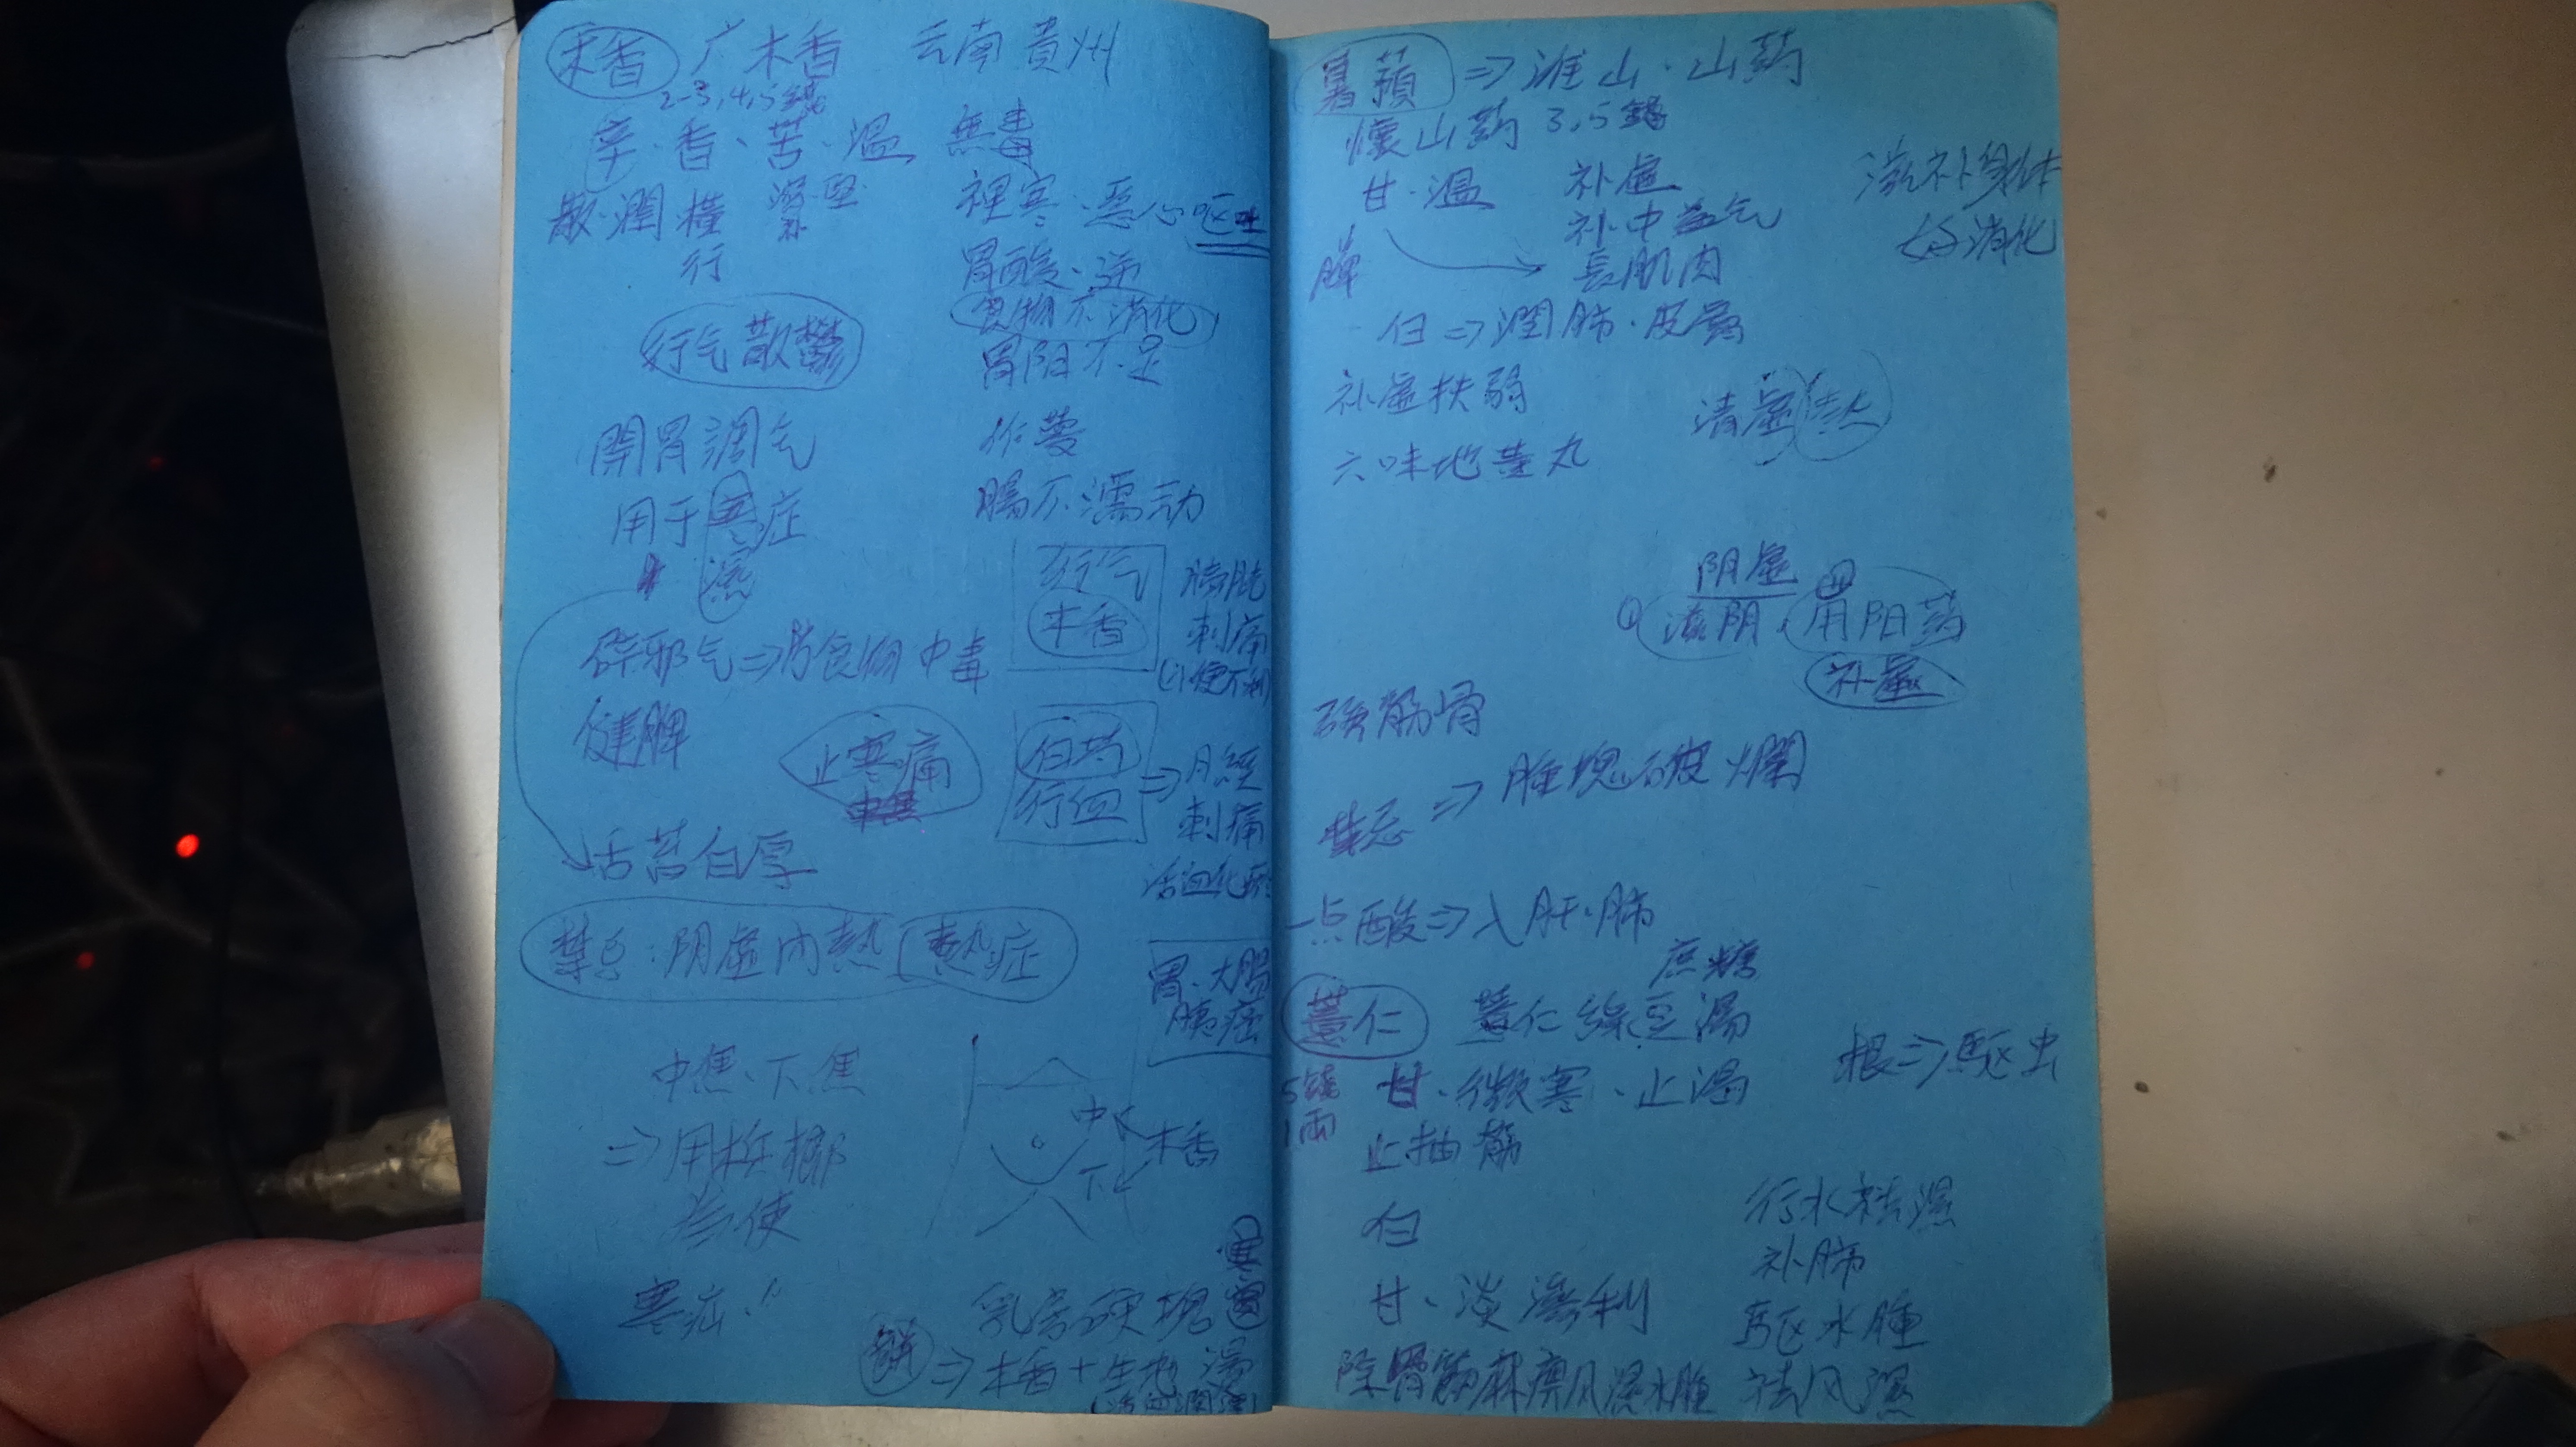 木香 广木香 云南貴州
2-3,4,5錢
辛·香、苦·温 無毒
散·潤 橫行
補
裡寒·惡心呕吐
胃酸·逆
食物不消化
胃阳不足
行气散鬱
開胃調气
腸不濡动
用于寒症
行气
木香
膀胱
刺痛
(小便不利)
辟邪气⇒防食物中毒
健脾
止寒痛
白芍
行血
⇒月經
刺痛
活血化瘀
舌苔白厚
禁忌:阴虛內熱 熱症
胃·大腸
胰癌
中焦、下焦
⇒用梹榔
为使
中
木香
下
寒疝
乳房硬塊
⇒木香+生地 湯
薯蕷⇒淮山·山药
懷山药 3,5錢
甘·温 补虛
补中益气
長肌肉
脾
滋补身体
消化
白⇒潤肺·皮膚
补虛扶弱
清虛熱
六味地黄丸
阴虛
①滋阴、用阳药
补虛
強筋骨
禁忌⇒腫塊破爛
一点酸⇒入肝·肺
蔗糖
薏仁 薏仁綠豆湯
根⇒驅虫
5錢
1兩
甘·微寒·止渴
止抽筋
白
行水祛濕
补肺
甘、淡滲利
驱水腫
除骨筋麻痹风濕水腫 祛风濕